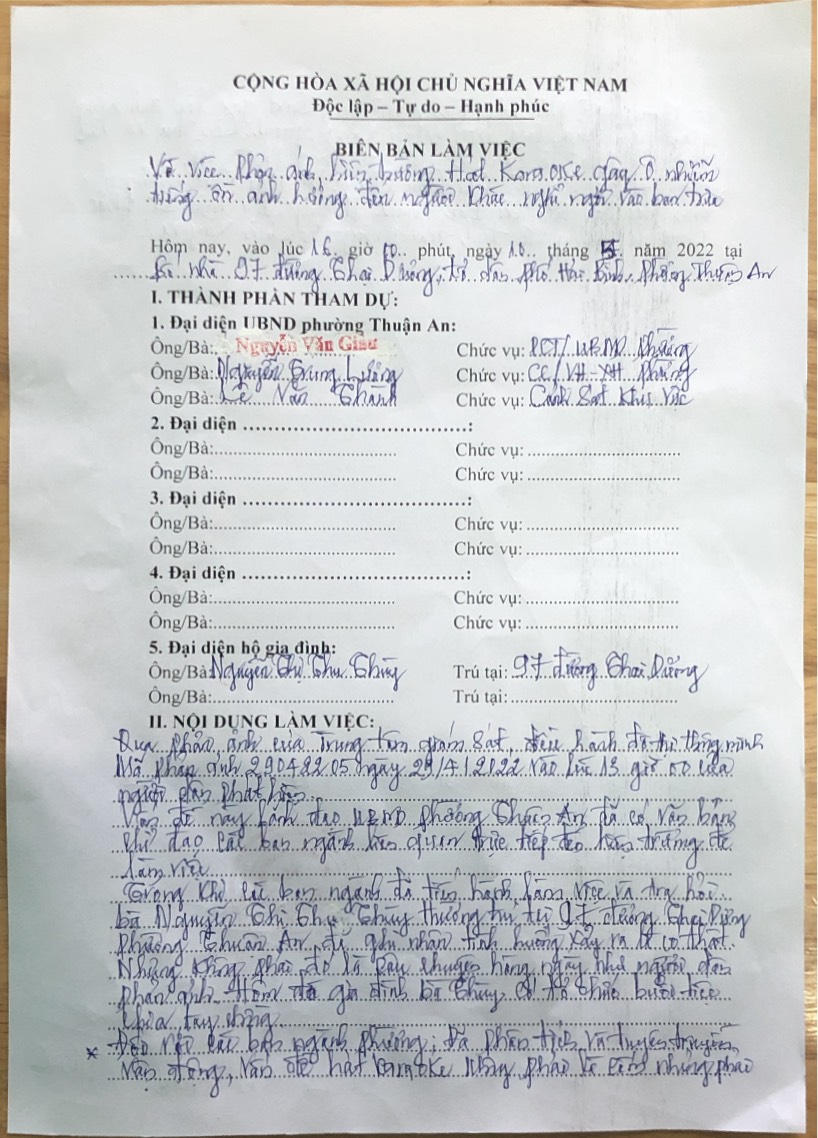 CỘNG HÒA XÃ HỘI CHỦ NGHĨA VIỆT NAM
Độc lập – Tự do – Hạnh phúc
BIÊN BẢN LÀM VIỆC
Về việc phản ánh hiện trường Hat Karaoke gây ô nhiễm
tiếng ồn ảnh hưởng đến người khác nghỉ ngơi vào ban trưa
Hôm nay, vào lúc 16 giờ 00 phút, ngày 10 tháng 5 năm 2022 tại
nhà 97 đường Thai Dương, tổ dân phố Hải Bình, phường Thuận An
I. THÀNH PHẦN THAM DỰ:
1. Đại diện UBND phường Thuận An:
Ông/Bà: Nguyễn Văn Giàu Chức vụ: PCT/UBND Phường
Ông/Bà: Nguyễn Trung Lương Chức vụ: CC/VH-XH Phường
Ông/Bà: Lê Văn Thành Chức vụ: Cảnh Sát Khu Vực
2. Đại diện ........................................:
Ông/Bà:.................................... Chức vụ: ..............................
Ông/Bà:.................................... Chức vụ: ..............................
3. Đại diện ........................................:
Ông/Bà:.................................... Chức vụ: ..............................
Ông/Bà:.................................... Chức vụ: ..............................
4. Đại diện ........................................:
Ông/Bà:.................................... Chức vụ: ..............................
Ông/Bà:.................................... Chức vụ: ..............................
5. Đại diện hộ gia đình:
Ông/Bà: Nguyễn Thị Thu Thùy Trú tại: 97 đường Thai Dương
Ông/Bà:.................................... Trú tại: ..............................
II. NỘI DUNG LÀM VIỆC:
Qua phản ánh của Trung tâm giám sát, điều hành đô thị thông minh
Mã phản ánh 29042205 ngày 29/4/2022 vào lúc 13 giờ 00 của
người dân phát hiện
Vấn đề này Lãnh đạo UBND phường Thuận An đã có văn bản
chỉ đạo các ban ngành liên quan trực tiếp đến hiện trường để
làm việc
Trong khi các ban ngành đã tiến hành làm việc và tra hỏi
bà Nguyễn Thị Thu Thùy thường trú tại 97 đường Thai Dương
phường Thuận An, đã ghi nhận tình huống xảy ra là có thật.
Nhưng không phải đó là câu chuyện hàng ngày như người dân
phản ánh. Hôm đó gia đình bà Thùy có tổ chức buổi tiệc
chia tay
* các ban ngành phường, đã phân tích và tuyên truyền
vận động, vấn đề hát karaoke không phải là cấm nhưng phải